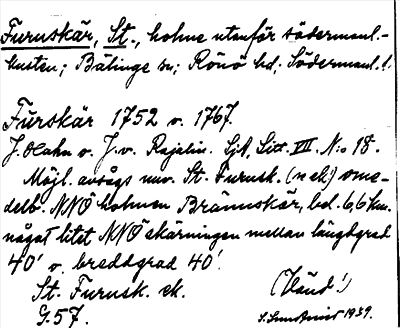 Furuskär, St., holme utanför södermanl.-
kusten; Bälinge sn; Rönö hd; Södermanl. l.
Furskär 1752 o. 1767.
J. Hahn o. J. v. Rajalin. SjK, Litt. VII. N:o 18.
Möjl. avsågs nuv. St. Furusk. (n ek:) ome-
delb. NNÖ holmen Brännskär, bel. 6,6 km.
något litet NNÖ skärningen mellan längdgrad
40' o. breddgrad 40'.
St. Furusk. ek.
(Vänd!)
G. 57.
1939.